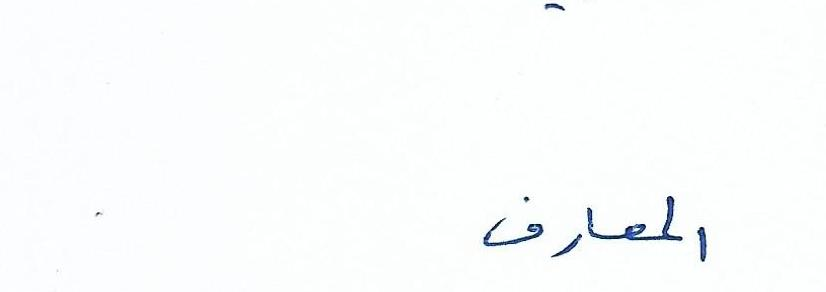 المعارف